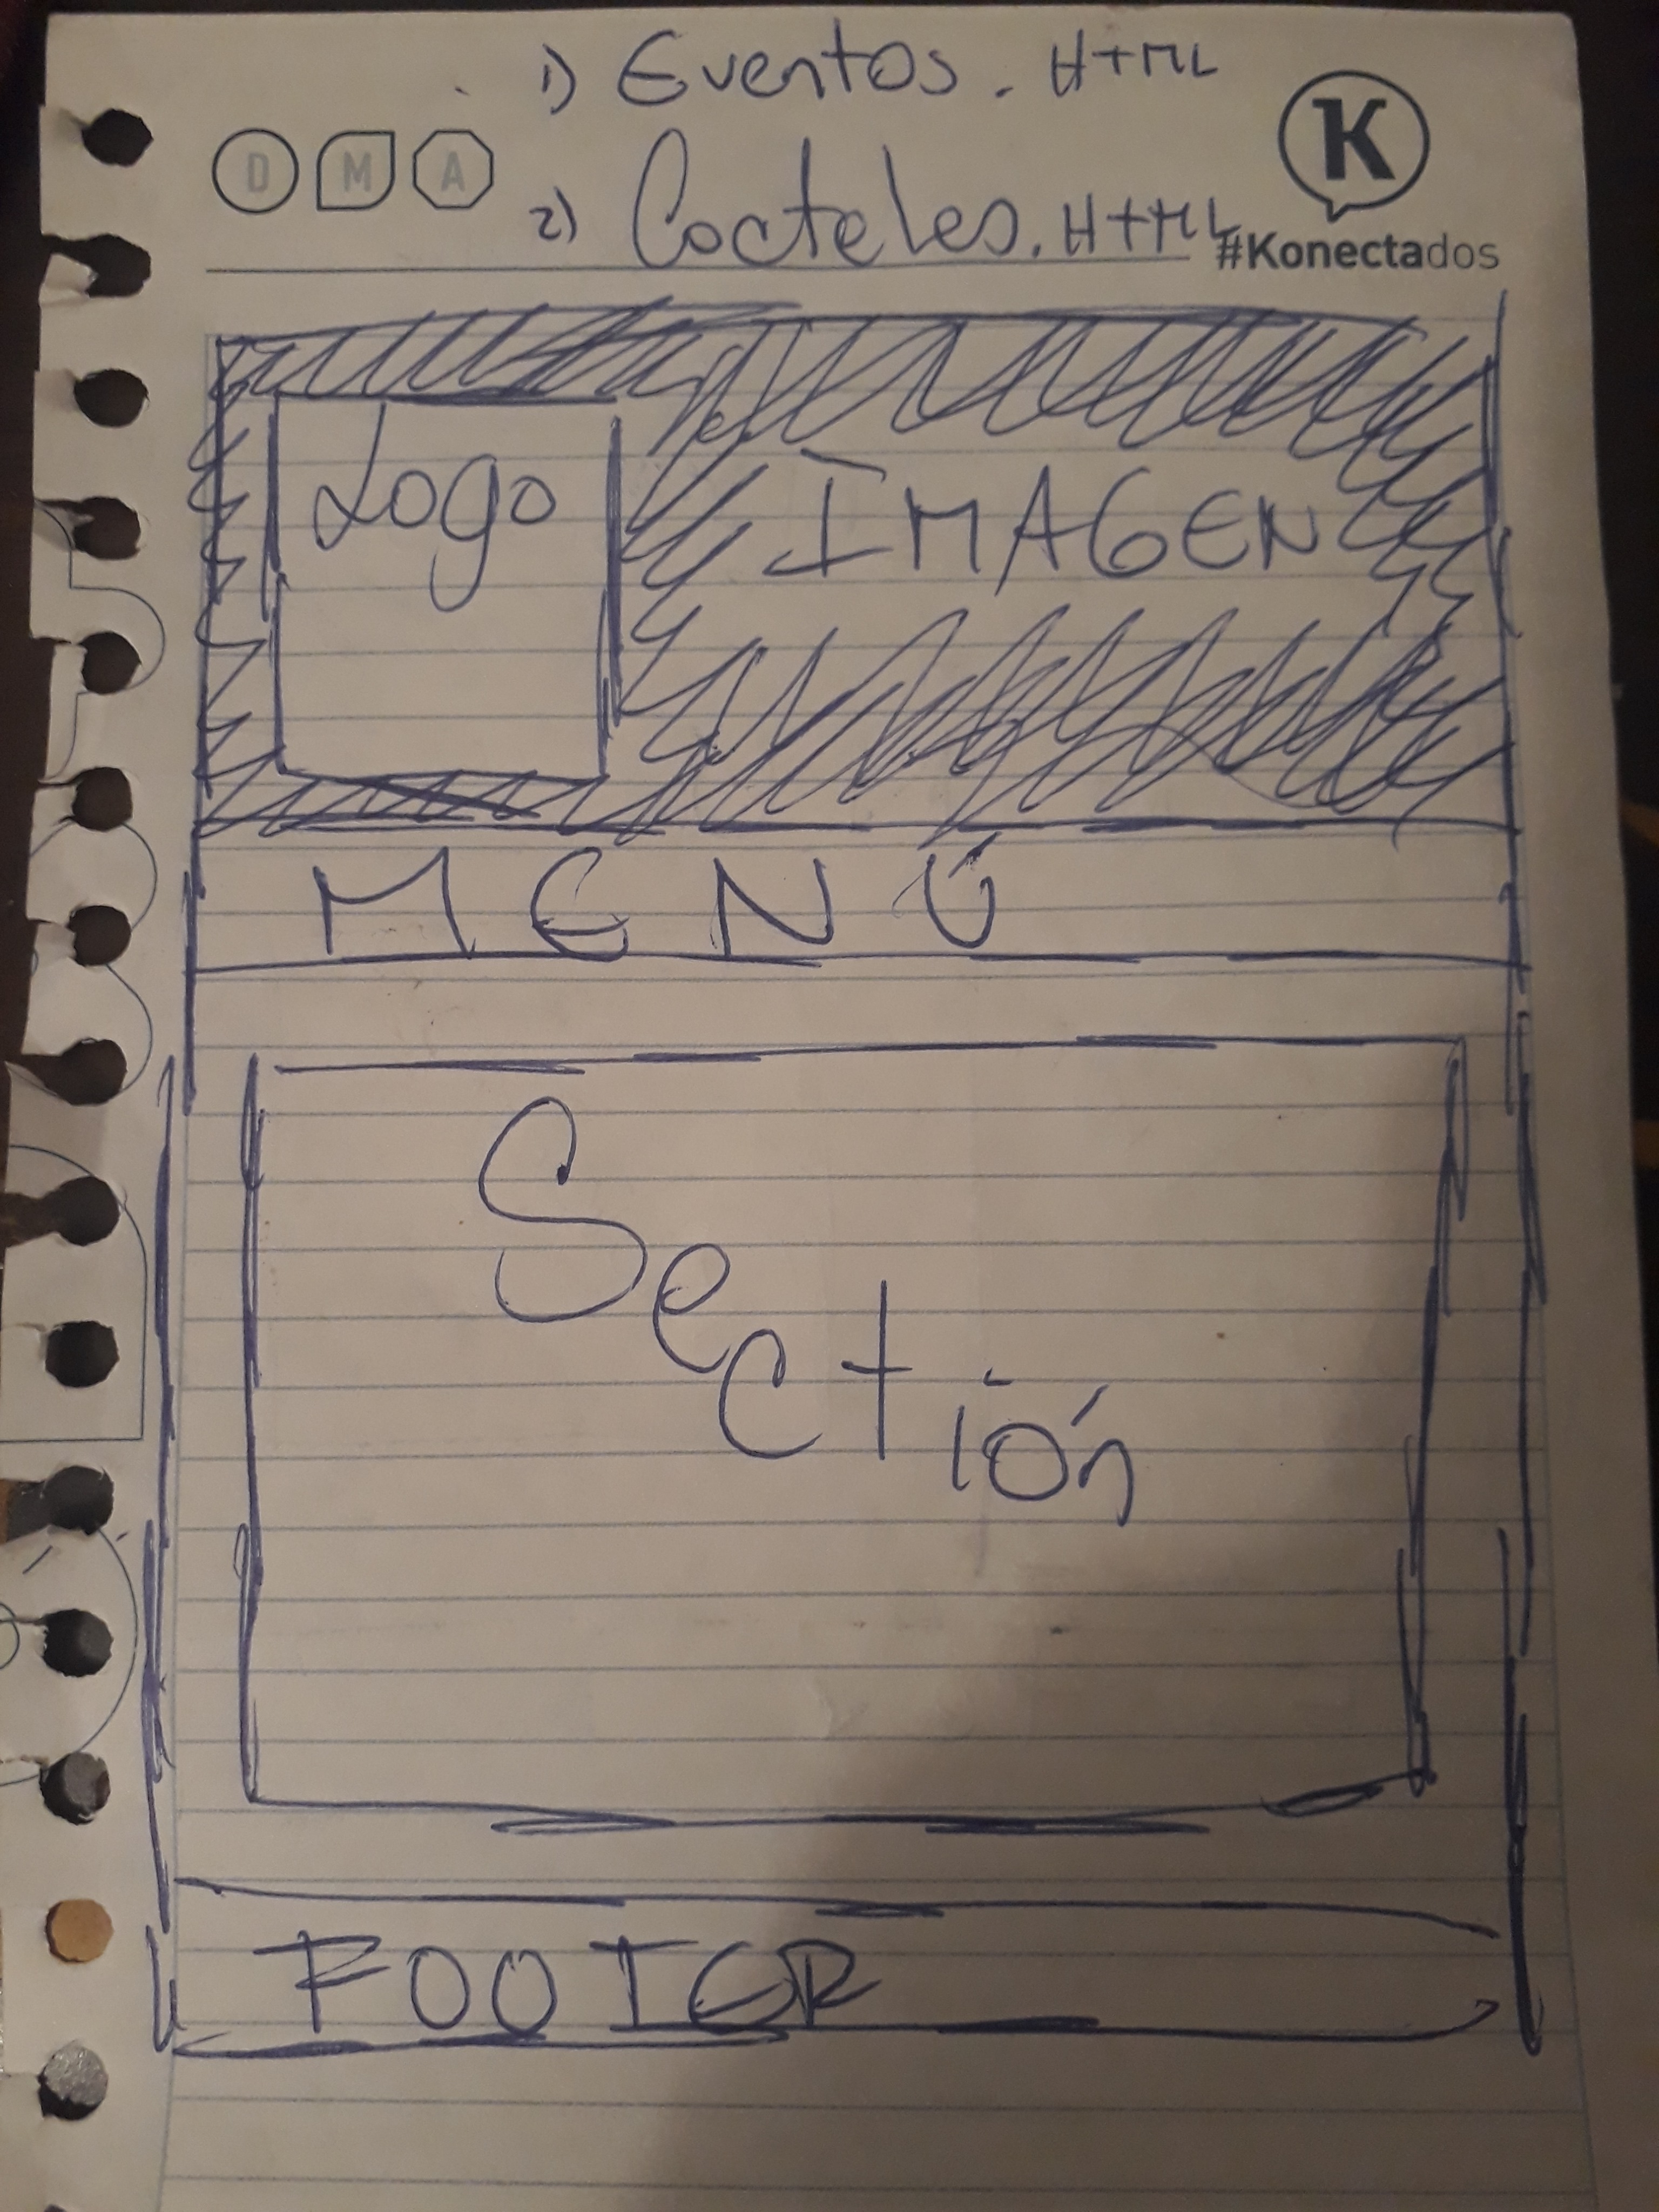 1) Eventos. HTML
D M A
K
2) Cocteles. HTML
#Konectados
Logo
IMAGEN
MENÚ
Sectión
FOOTER